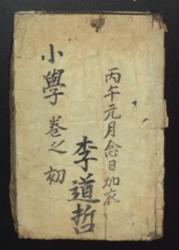 丙午元月念日加衣
李道哲
小學 卷之初